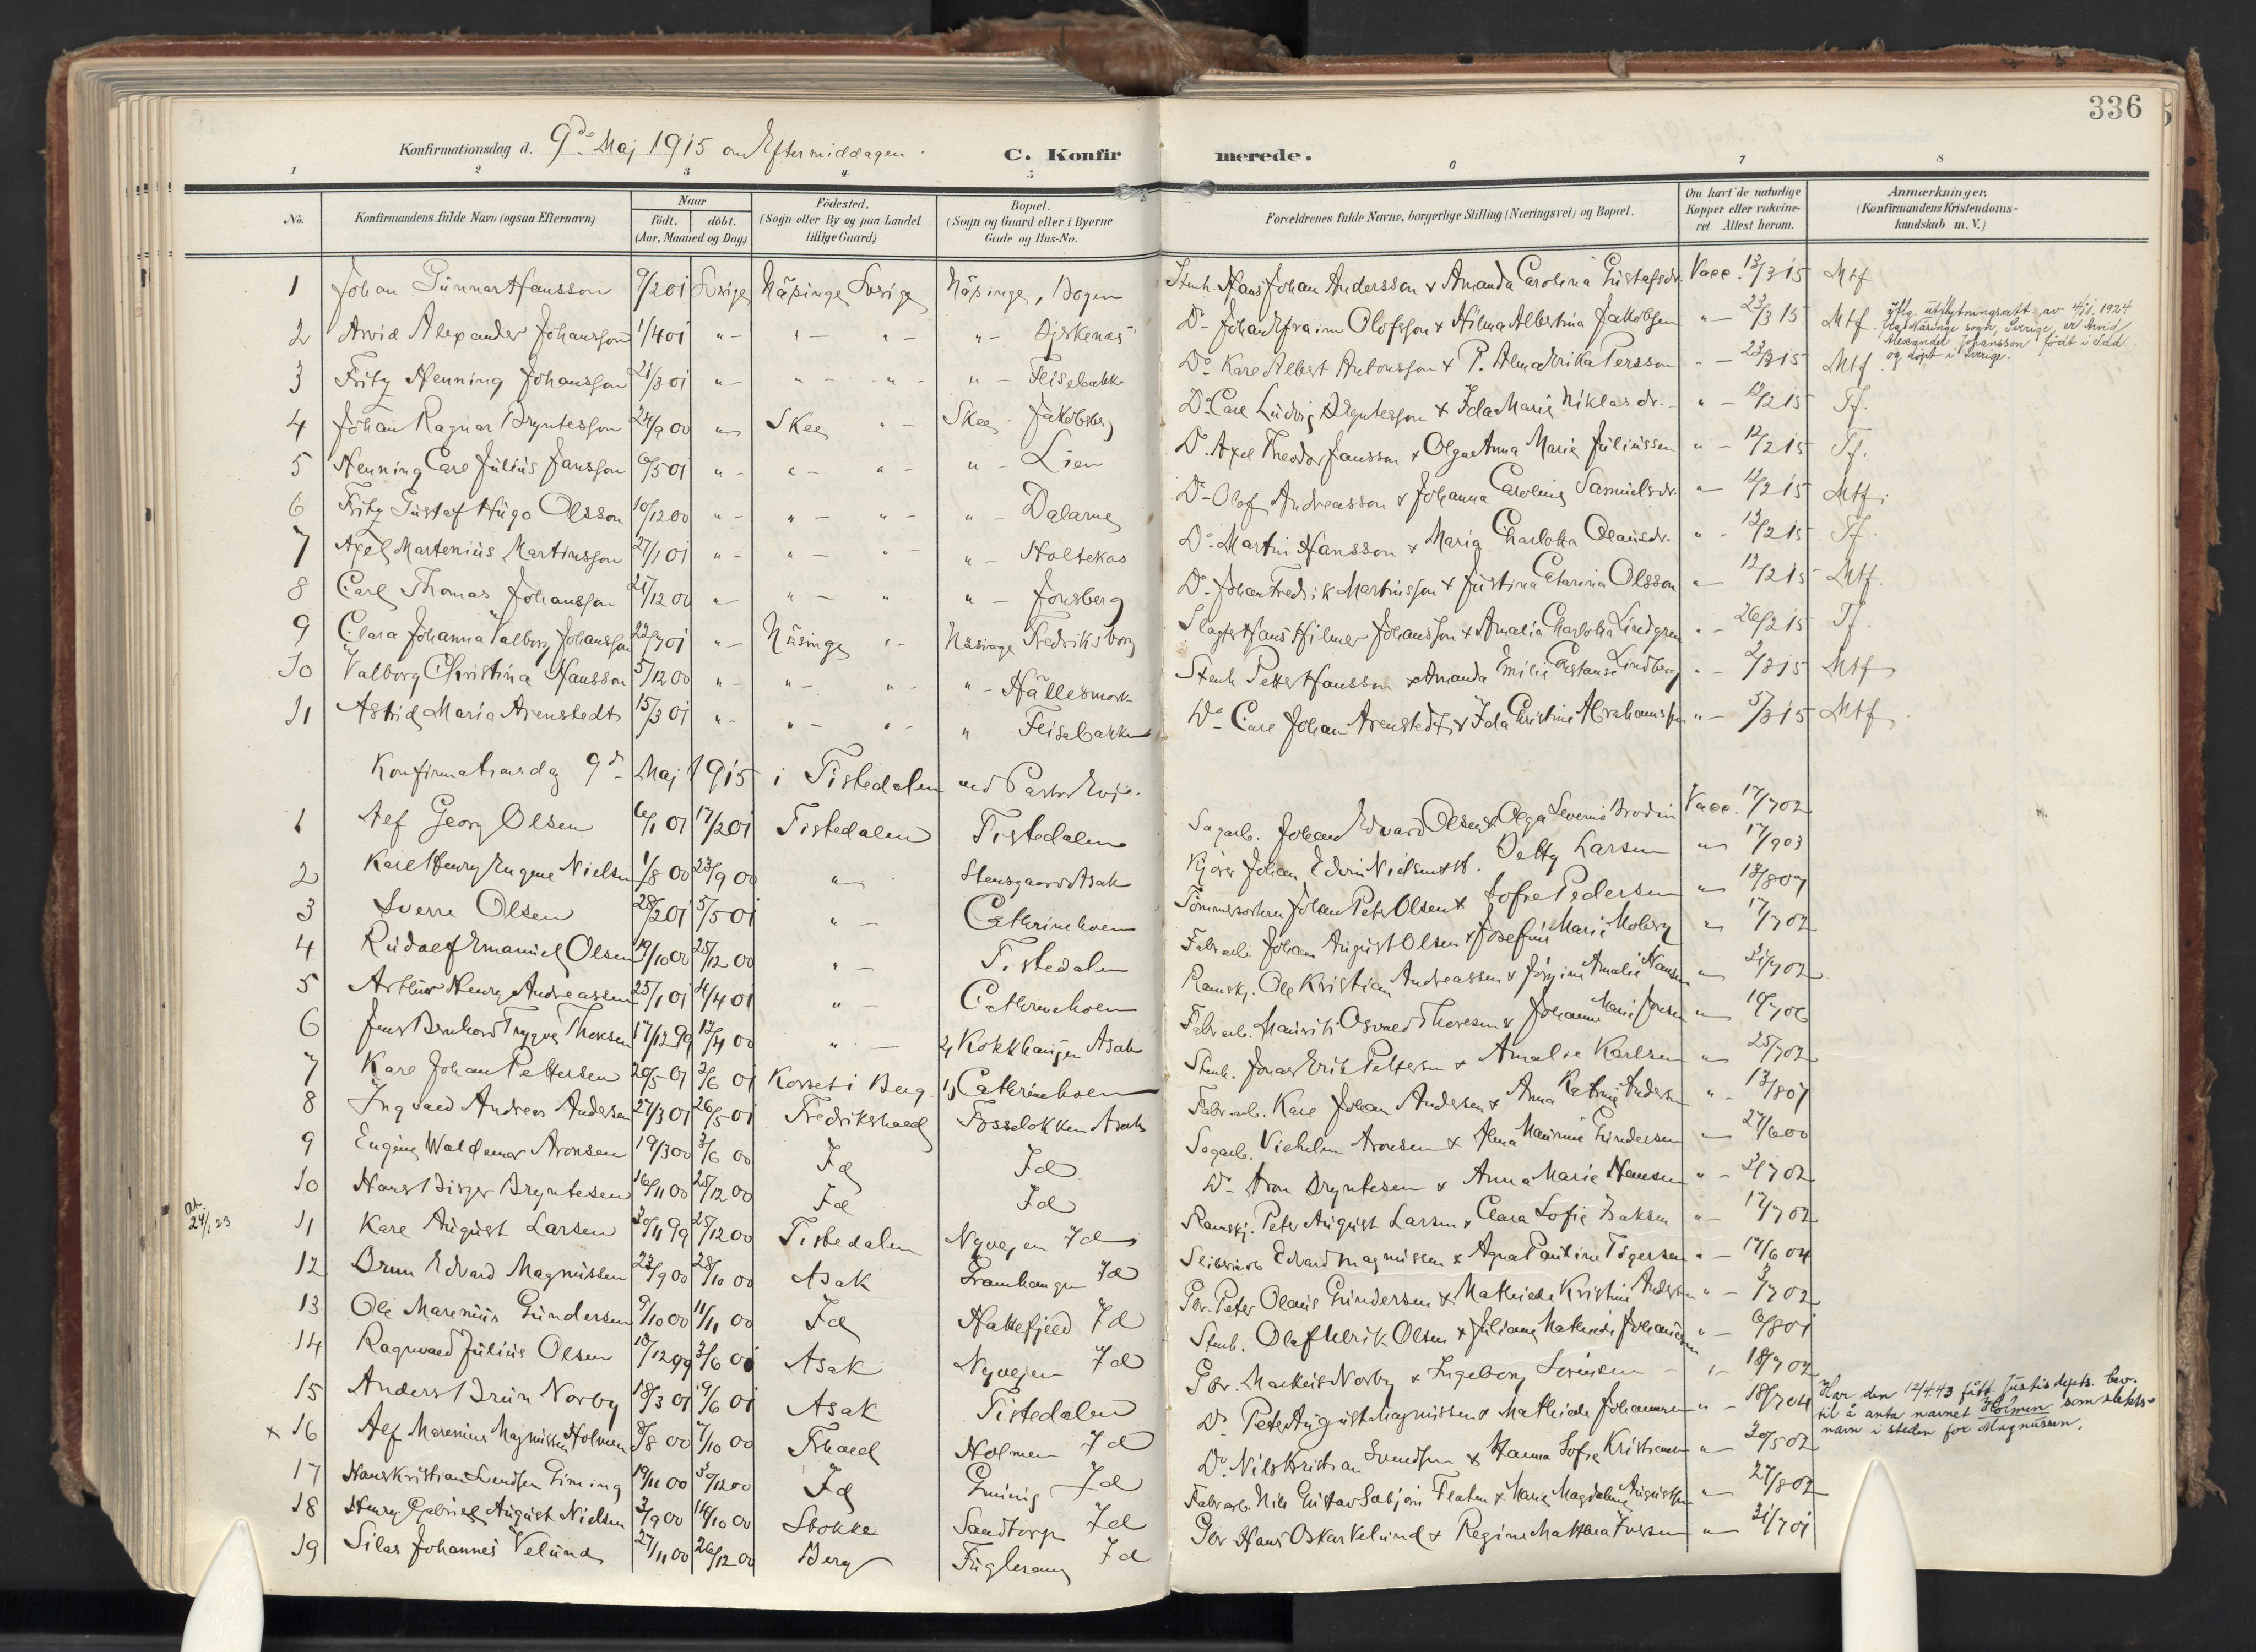 336
Konfirmationsdag d. 9de Maj 1915 om Eftermiddagen.
C. Konfirmerede.
1 2 3 4 5 6 7 8
No. Konfirmandens fulde Navn (ogsaa Efternavn) Naar født. døbt. (Aar, Maaned og Dag) Fødested. (Sogn eller By og paa Landet tillige Gaard) Bopæl. (Sogn og Gaard eller i Byerne Gade og Hus-No. Forældrenes fulde Navne, borgerlige Stilling (Næringsvei) og Bopæl. Om havt de naturlige Kopper eller vakcineret Attest herom. Anmærkninger. (Konfirmandens Kristendomskundskab m. V.)
1 Johan Gunnar Hansson 9/2 01 Sverige Näsinge Sverige Näsinge, Bogen Stenh. Hans Johan Andersson & Amanda Carolina Gustafsdr. Vacc. 13/3 15 Mtf
2 Arvid Alexander Johansson 1/4 01 " - " - " - " - Björkenäs Do Johan Efraim Olofsson & Hilma Albertina Jakobsen " - 23/3 15 Mtf. Iflg. utskytningsatt. av 4/1 1924 fra Näsinge sogn, Sverige, er Arvid Alexander Johansson født i Idd og døpt i Sverige.
3 Fritz Henning Johansson 21/3 01 " - " - " - " - Flisebakke Do Karl Albert Antonsson & P. Alma Erika Persson " - 23/3 15 Mtf
4 Johan Ragnar Bryntesson 24/9 00 " Skee " - Skee - Jakobsberg Do Carl Ludvig Bryntesson & Ida Maria Niklasdr. " - 12/2 15 Tf.
5 Henning Carl Julius Jansson 6/5 01 " - " - " - " - Lien Do Axel Theodor Jansson & Olga Anna Maria Juliussen " - 12/2 15 Tf.
6 Fritz Gustaf Hugo Olsson 10/12 00 " - " - " - " - Dalarne Do Olof Andreasson & Johanna Carolina Samuelsdr. " - 12/2 15 Mtf.
7 Axel Martenius Martinsson 27/1 01 " - " - " - " - Holtekas Do Martin Hansson & Maria Charlotta Olausdr. " - 12/2 15 Tf.
8 Carl Thomas Johansson 21/12 00 " - " - " " - Jonsberg Do Johan Fredrik Martinsson & Justina Catarina Olsson " - 12/2 15 Mtf.
9 Clara Johanna Valborg Johansson 22/7 01 " - Näsinge " - Näsinge Fredriksborg Slagter Hans Hilmer Johansson & Amalia Charlotta Lindgren " - 26/2 15 Tf.
10 Valborg Christina Hansson 5/12 00 " - " - " - " - Hällesmork Stenh. Petter Hansson & Amanda Emilie Constanse Lindberg " - 2/3 15 Mtf
11 Astrid Maria Arenstedt 15/3 01 " - " - " - " Flisebakken Do Carl Johan Arenstedt & Ida Christine Abrahamsson " - 5/3 15 Mtf
Konfirmationsdag 9d Maj 1915 i Tistedalen ved Pastor Evje.
1 Alf Georg Olsen 6/1 01 17/2 01 Tistedalen Tistedalen Sagarb. Johan Edvard Olsen & Olga Severine Brodin Vacc. 17/7 02
2 Karl Henry Eugene Nielsen 1/8 00 23/9 00 " Stensgaard Asak Kjører Johan Edvin Nielsen & H. Betty Larsen " 17/9 03
3 Sverre Olsen 28/2 01 5/5 01 " - Cathrineholm Tømmersorterer Johan Peter Olsen & Sofie Pedersen " 13/8 07
4 Rudolf Emanuel Olsen 19/10 00 25/12 00 " - Tistedalen Fabr.arb. Johan August Olsen & Josefine Marie Moberg " 17/7 02
5 Arthur Henry Andreassen 25/1 01 4/4 01 " - Cathrineholm Ramskj. Ole Kristian Andreassen & Jørgine Amalie Hansen " 31/7 02
6 Jens Bernhard Trygve Thoresen 17/12 99 17/4 00 " - 2) Kokkhaugen Asak Fabr.arb. Mauritz Osvald Thoresen & Johanne Marie Jensen " 14/7 06
7 Karl Johan Pettersen 20/5 01 2/6 01 Korset i Berg 1) Cathrineholm Stenh. Jonas Erik Pettersen & Amalie Karlsen " 25/7 02
8 Ingvald Andreas Andersen 27/3 01 26/5 01 Fredrikshald Fosseløkken Asak Fabr.arb. Karl Johan Andersen & Anna Katrine Andersen " - 13/8 07
9 Eugen Waldemar Aronsen 19/3 00 3/6 00 Id Id Sagarb. Vilhelm Aronsen & Alma Maurine Gundersen " 27/6 00
10 Hans Birger Bryntesen 16/11 00 25/12 00 Id Id Do Aron Bryntesen & Anna Marie Hansen " - 31/7 02
at. 24/1 23
11 Karl August Larsen 30/11 99 25/12 00 Tistedalen Nyvejen Id Ramskj. Peter August Larsen & Clara Sofie Isaksen " - 17/7 02
12 Brun Edvard Magnussen 23/9 00 28/10 00 Asak Gramhaugen Id Sliberiarb Edvard Magnussen & Agna Pauline Tigersen " - 17/6 04
13 Ole Marenius Gundersen 9/10 00 11/11 00 Id Hakkefjeld Id Gbr. Peter Olaus Gundersen & Mathilde Kristine Andersen " - 3/7 02
14 Ragnvald Julius Olsen 18/12 99 3/6 00 Asak Nyvejen Id Stenh. Olaf Ulrik Olsen & Juliane Mathilde Johansen " - 6/8 01
15 Anders Brun Norby 18/3 01 9/6 01 Asak Tistedalen Gbr. Markus Norby & Ingeborg Sørensen - " 18/7 02
x 16 Alf Marenius Magnussen Holmen 8/8 00 7/10 00 Fhald Holmen Id Do Peter August Magnussen & Mathilde Johannesen " - 18/7 04 Har den 12/4.43 fått Justisdepts. bev. til å anta navnet Holmen som slektsnavn i steden for Magnussen.
17 Hans Kristian Svendsen Liming 19/11 00 30/12 00 Id Id Do Nils Kristian Svendsen & Hanna Sofie Kristiansen " 30/5 02
18 Henry Gabriel August Nielsen 3/9 00 14/10 00 Stokke Sandtorp Id Fabr.arb. Nils Gustav Flaten & Marie Magdalene Augustsen " 27/8 02
19 Silas Johannes Velund 27/11 00 26/12 00 Berg Id Gbr Hans Oskar Velund & Regine Mathea Iversen " 31/7 01